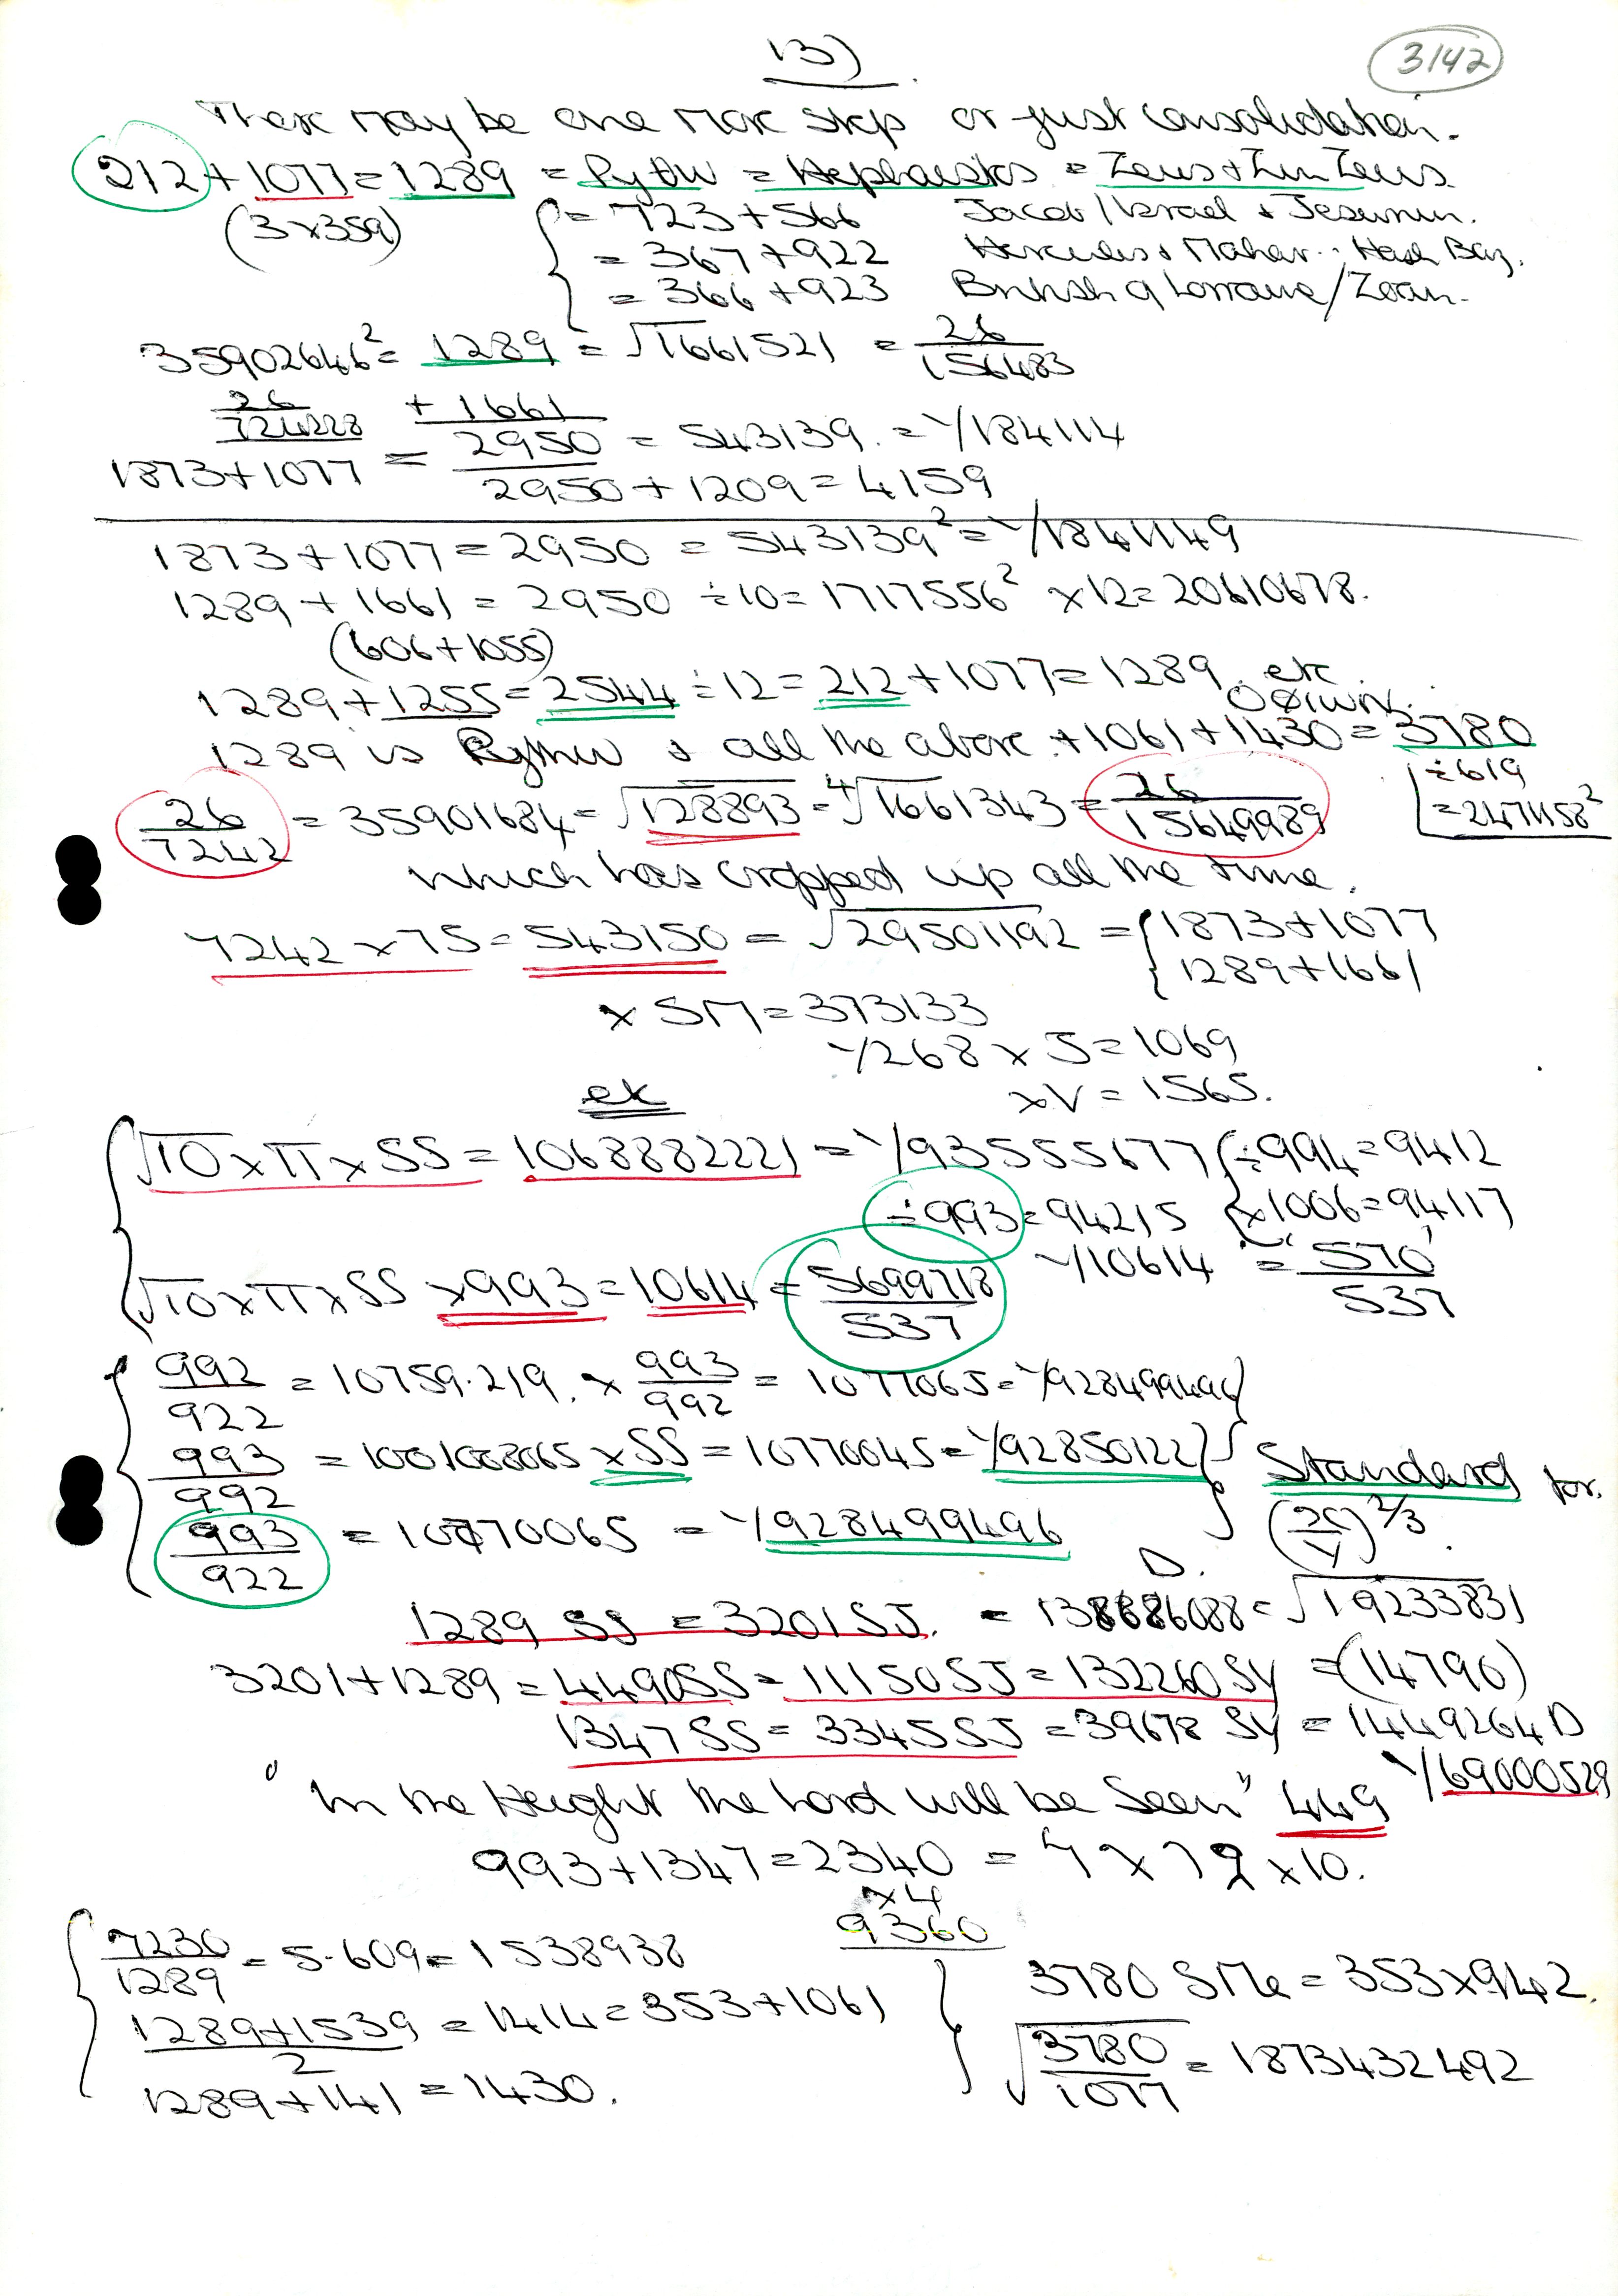 13)
3142
There may be one more step or just consolidation.
212 + 1077 = 1289 = Pythw = Hephaestos = Zeus + Zeus.
(3×359)
= 723 + 566 Jacob/Israel + Jesumun.
= 367 + 922 Hercules + Maher.. Hash Baz.
= 366 + 923 British Q Lorraine/Zoan.
35902646² = 1289 = √1661521 = 26/156483
26/724228 + 1661
1873 + 1077 = 2950 = 543139. = 1/184114
2950 + 1209 = 4159
1873 + 1077 = 2950 = 543139² = 1/1841149
1289 + 1661 = 2950 ÷ 10 = 1717556² × 12 = 20610678.
(606 + 1055)
1289 + 1255 = 2544 ÷ 12 = 212 + 1077 = 1289. etc
1289 is Pythw + all the above + 1061 + 1430 = 3780
÷ 619
= 2471158²
26/7242 = 35901684 = √128893 = ⁴√1661343 = 26/15649989
which has cropped up all the time.
7242 × 75 = 543150 = √29501192 = { 1873 + 1077
1289 + 1661
× SM = 373133
1/268 × J = 1069
× V = 1565.
ex
√10 × π × SS = 1068882221 = 1/93555677 { ÷ 994 = 9412
÷ 993 = 94215 { × 1006 = 94117
√10 × π × SS × 993 = 10614 = 5699718/537 1/10614 = "570"/537
992/922 = 10759.219. × 993/992 = 1077065 = 1/928499496
993/992 = 1001008065 × SS = 10770045 = 1/92850122 } Standard for.
993/922 = 10770065 = 1/928499496 (25/V)^2/3.
D.
1289 SS = 3201 SJ. = 138686088 = √19233831
3201 + 1289 = 4490 SS = 11150 SJ = 132260 SV = (14790)
1347 SS = 3345 SJ = 39678 SV = 1449264 D
1/69000529
"In the Height the Lord will be Seen" 449
993 + 1347 = 2340 = × 10.
× 4
9360
7230/1289 = 5.609 = 1538938
(1289 + 1539)/2 = 1414 = 353 + 1061
1289 + 141 = 1430.
3780 SMe = 353 × 942.
√3780/1077 = 1873432492